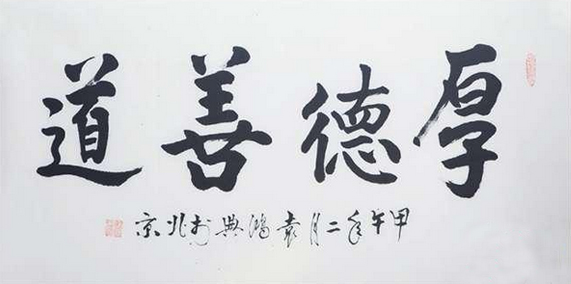 厚德善道
甲午年二月袁鸿典于北京